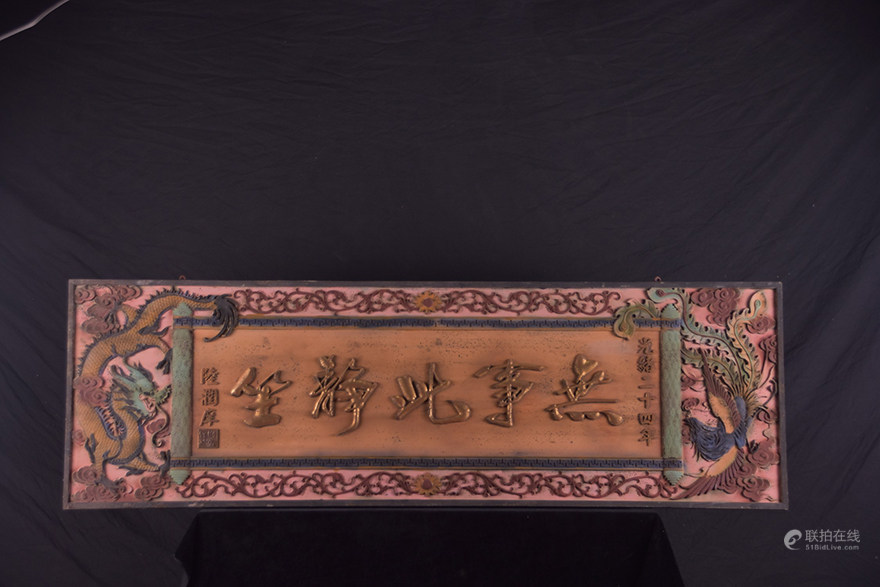 光緒二十四年
無事此靜坐
陸潤庠
联拍在线
51BidLive.com